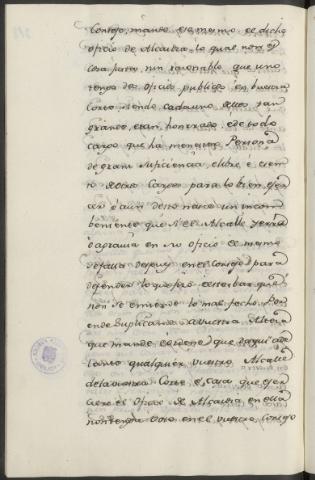 Consejo, mando eso mismo el dicho
oficio de Alcaldia lo qual non es
cosa justa, nin raxonable que uno
tenga dos oficios publicos en buestra
Corte siendo cada uno dellos tan
grande, e tan honrrado, e de todo
cargo que ha menester Persona
de gran suficiencia, e libre, e esem
to de otro cargo para lo bien exer
cer e aun desto nace un incom
beniente que si el Alcalde yerra
o agravia en su oficio el mesmo
se falla despues en el Consejo para
defender lo que fizo e estorbar que
non se emiende lo mal fecho. Por
ende suplicamos a vuestra Alteza
que mande e ordene que daqui ade
lante qualquier vuestro Alcalde
de la vuestra Corte, e Casa que exer
ciere el oficio de Alcaldia en ella
non tenga voto en el vuestro Consejo